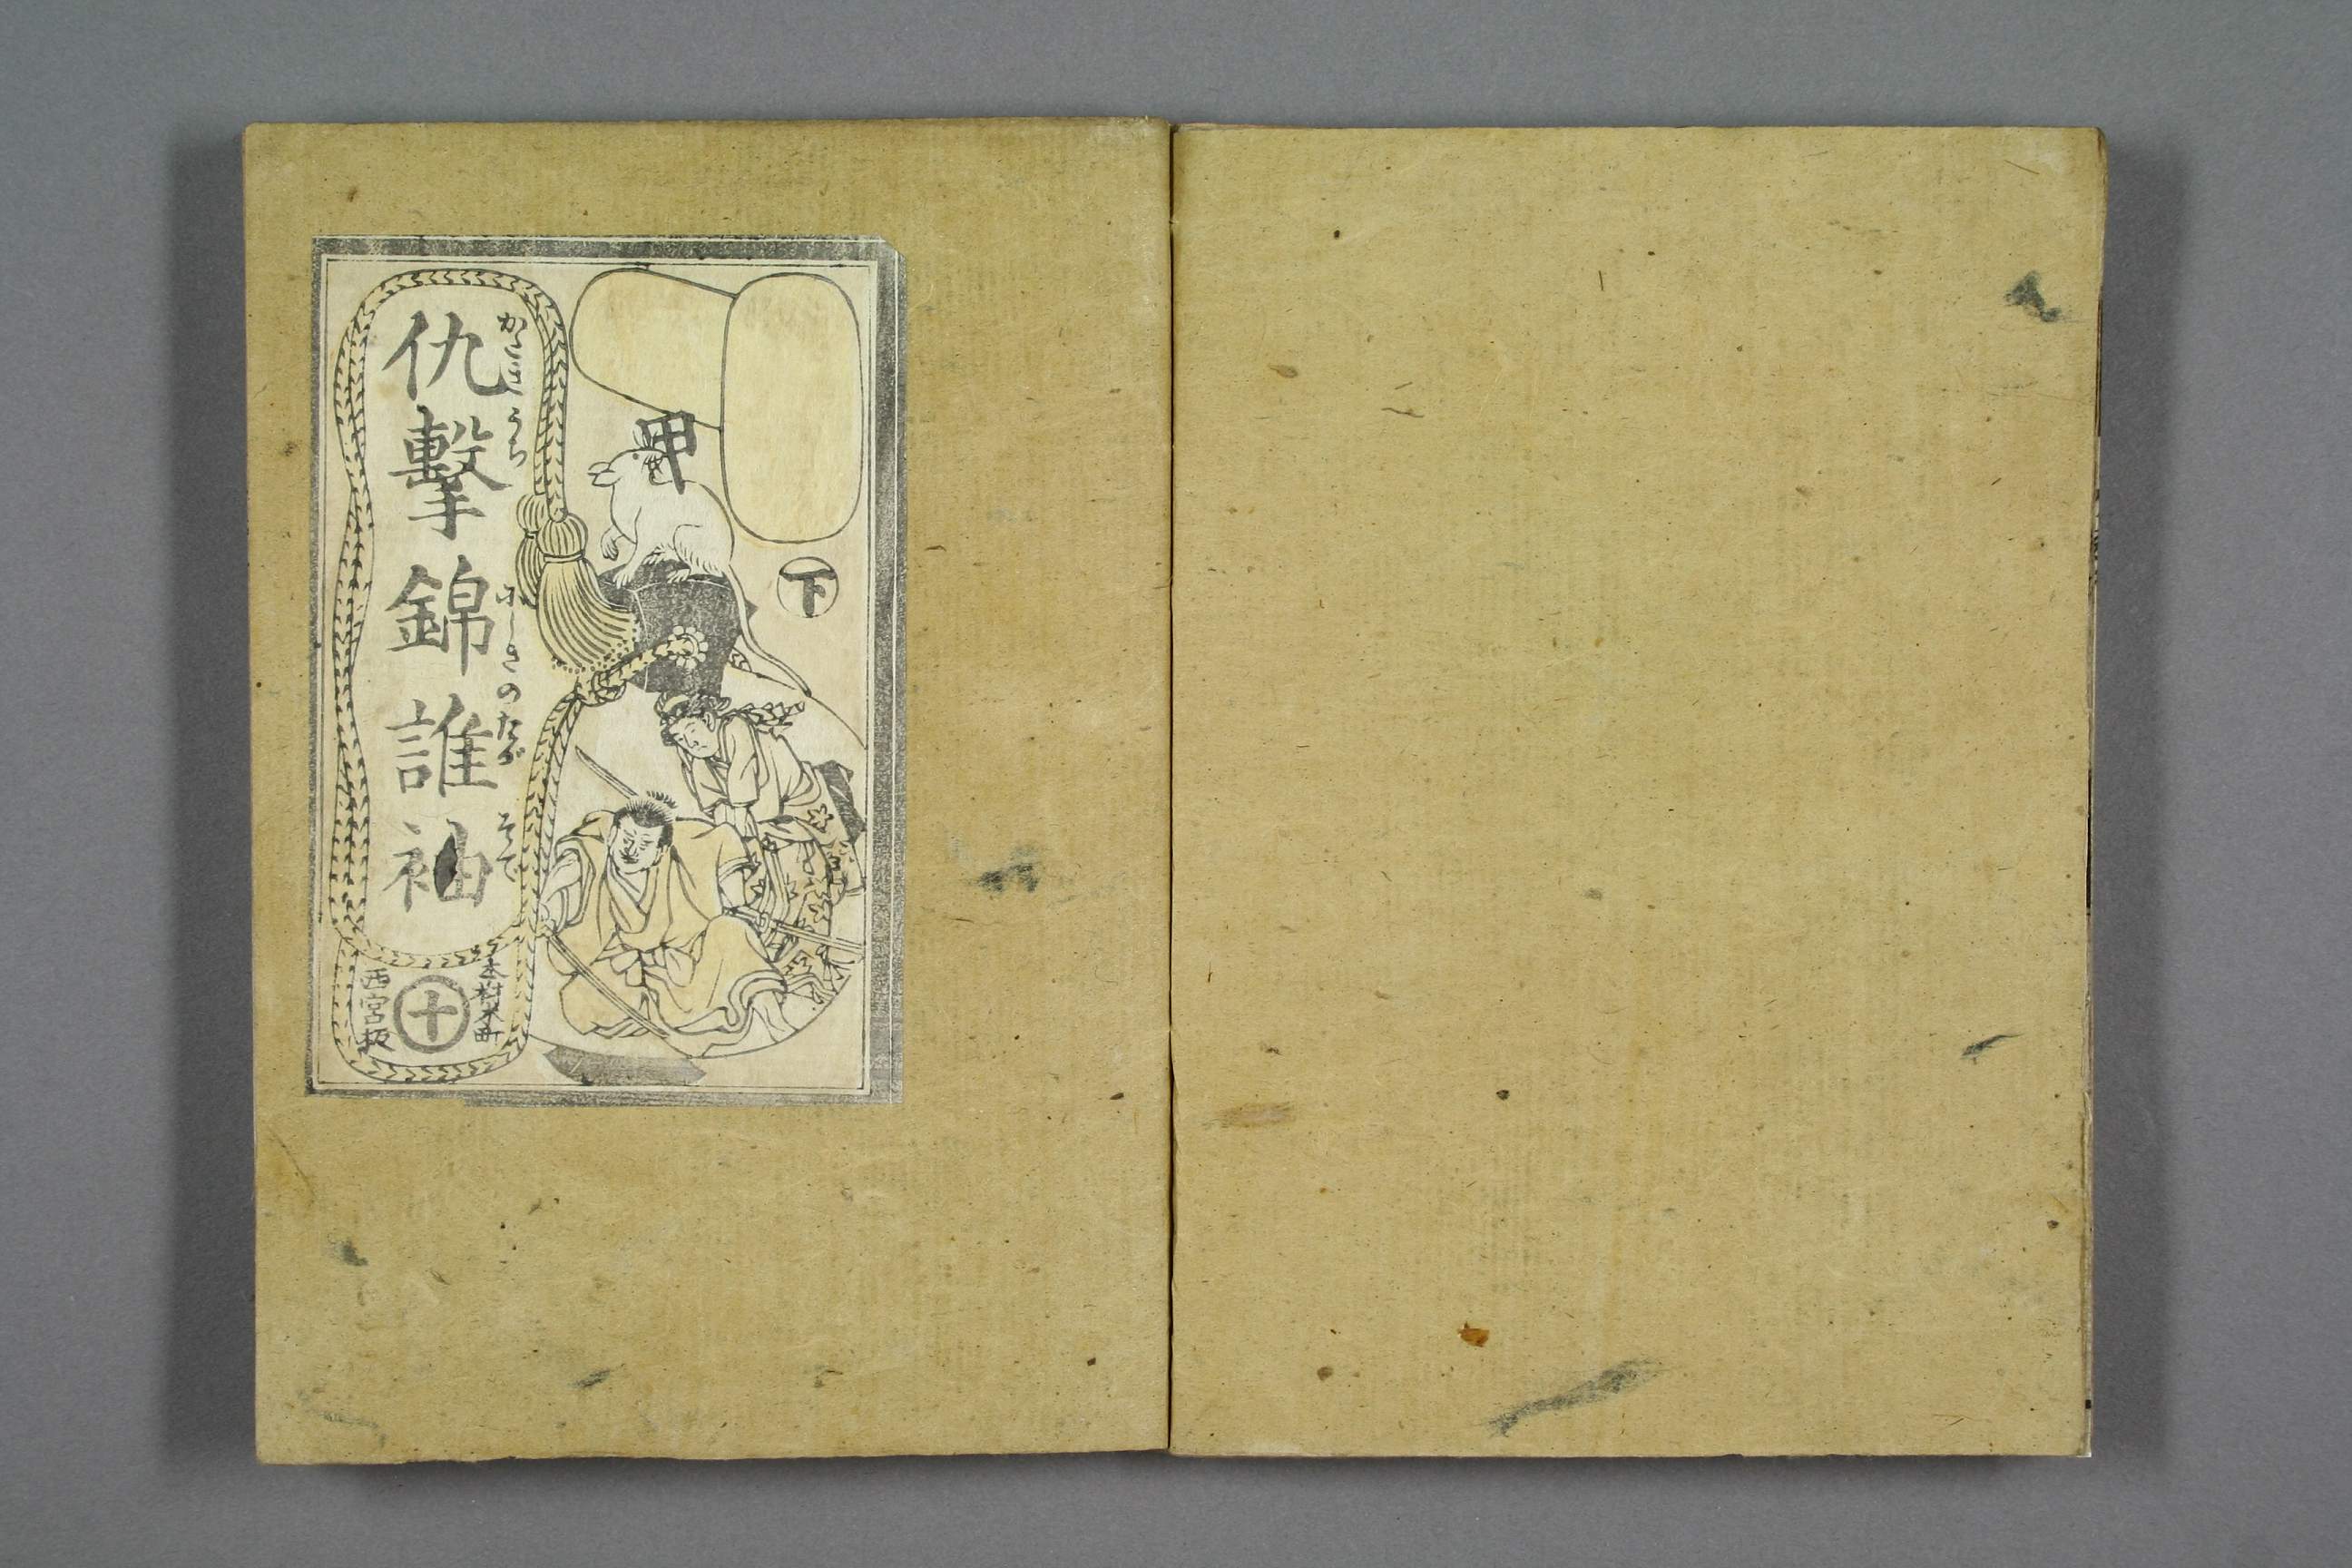 甲
下
かたきうち にしきのたが そで
仇擊錦誰袖
本材木町
十
西宮板